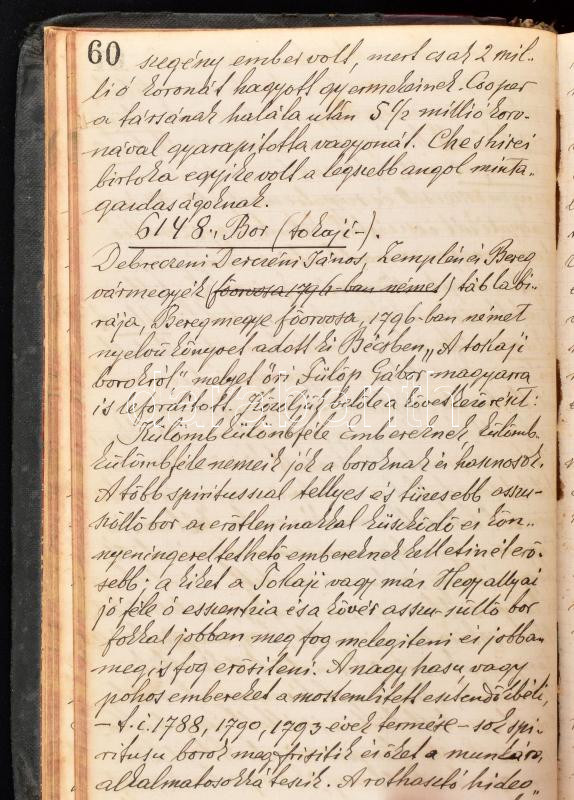 60
szegény ember volt, mert csak 2 mil-
lió koronát hagyott gyermekeinek. Cooper
a társának halála után 5 1/2 millió koro-
nával gyarapította vagyonát. Cheshirei
birtoka egyike volt a legszebb angol minta-
gazdaságoknak.
6148., Bor (tokaji-).
Debreczeni Derczéni János, Zemplén és Bereg
vármegyék (főorvosa 1796-ban német) táblabi-
rája, Beregmegye főorvosa, 1796-ban német
nyelvű könyvet adott ki Bécsben „A tokaji
borokról" melyet őri Fülöp Gábor magyarra
is leforditott. Közöljük belőle a következőket:
Külömbkülömbféle embereknek, külömb-
külömbféle nemeik jók a boroknak és hasznosok.
A több spiritussal tellyes és tüzesebb asszu-
szöllő bor az erőtlen inakkal küszködő és kön-
nyen ingereltethető embereknek kelletinél erő-
sebb; a kiket a Tokaji vagy más Hegyallyai
jó féle ó essentzia és a kövér asszu-szöllő bor
sokkal jobban meg fog melegiteni és jobban
meg is fog erősiteni. A nagy hasu vagy
pohos embereket a most emlitett esztendőkbéli,
- t. i. 1788, 1790, 1793 évek termése - sok spi-
ritusu borok meg frisitik és őket a munkára
alkalmatosokká teszik. A rothasztó hideg
darabanth